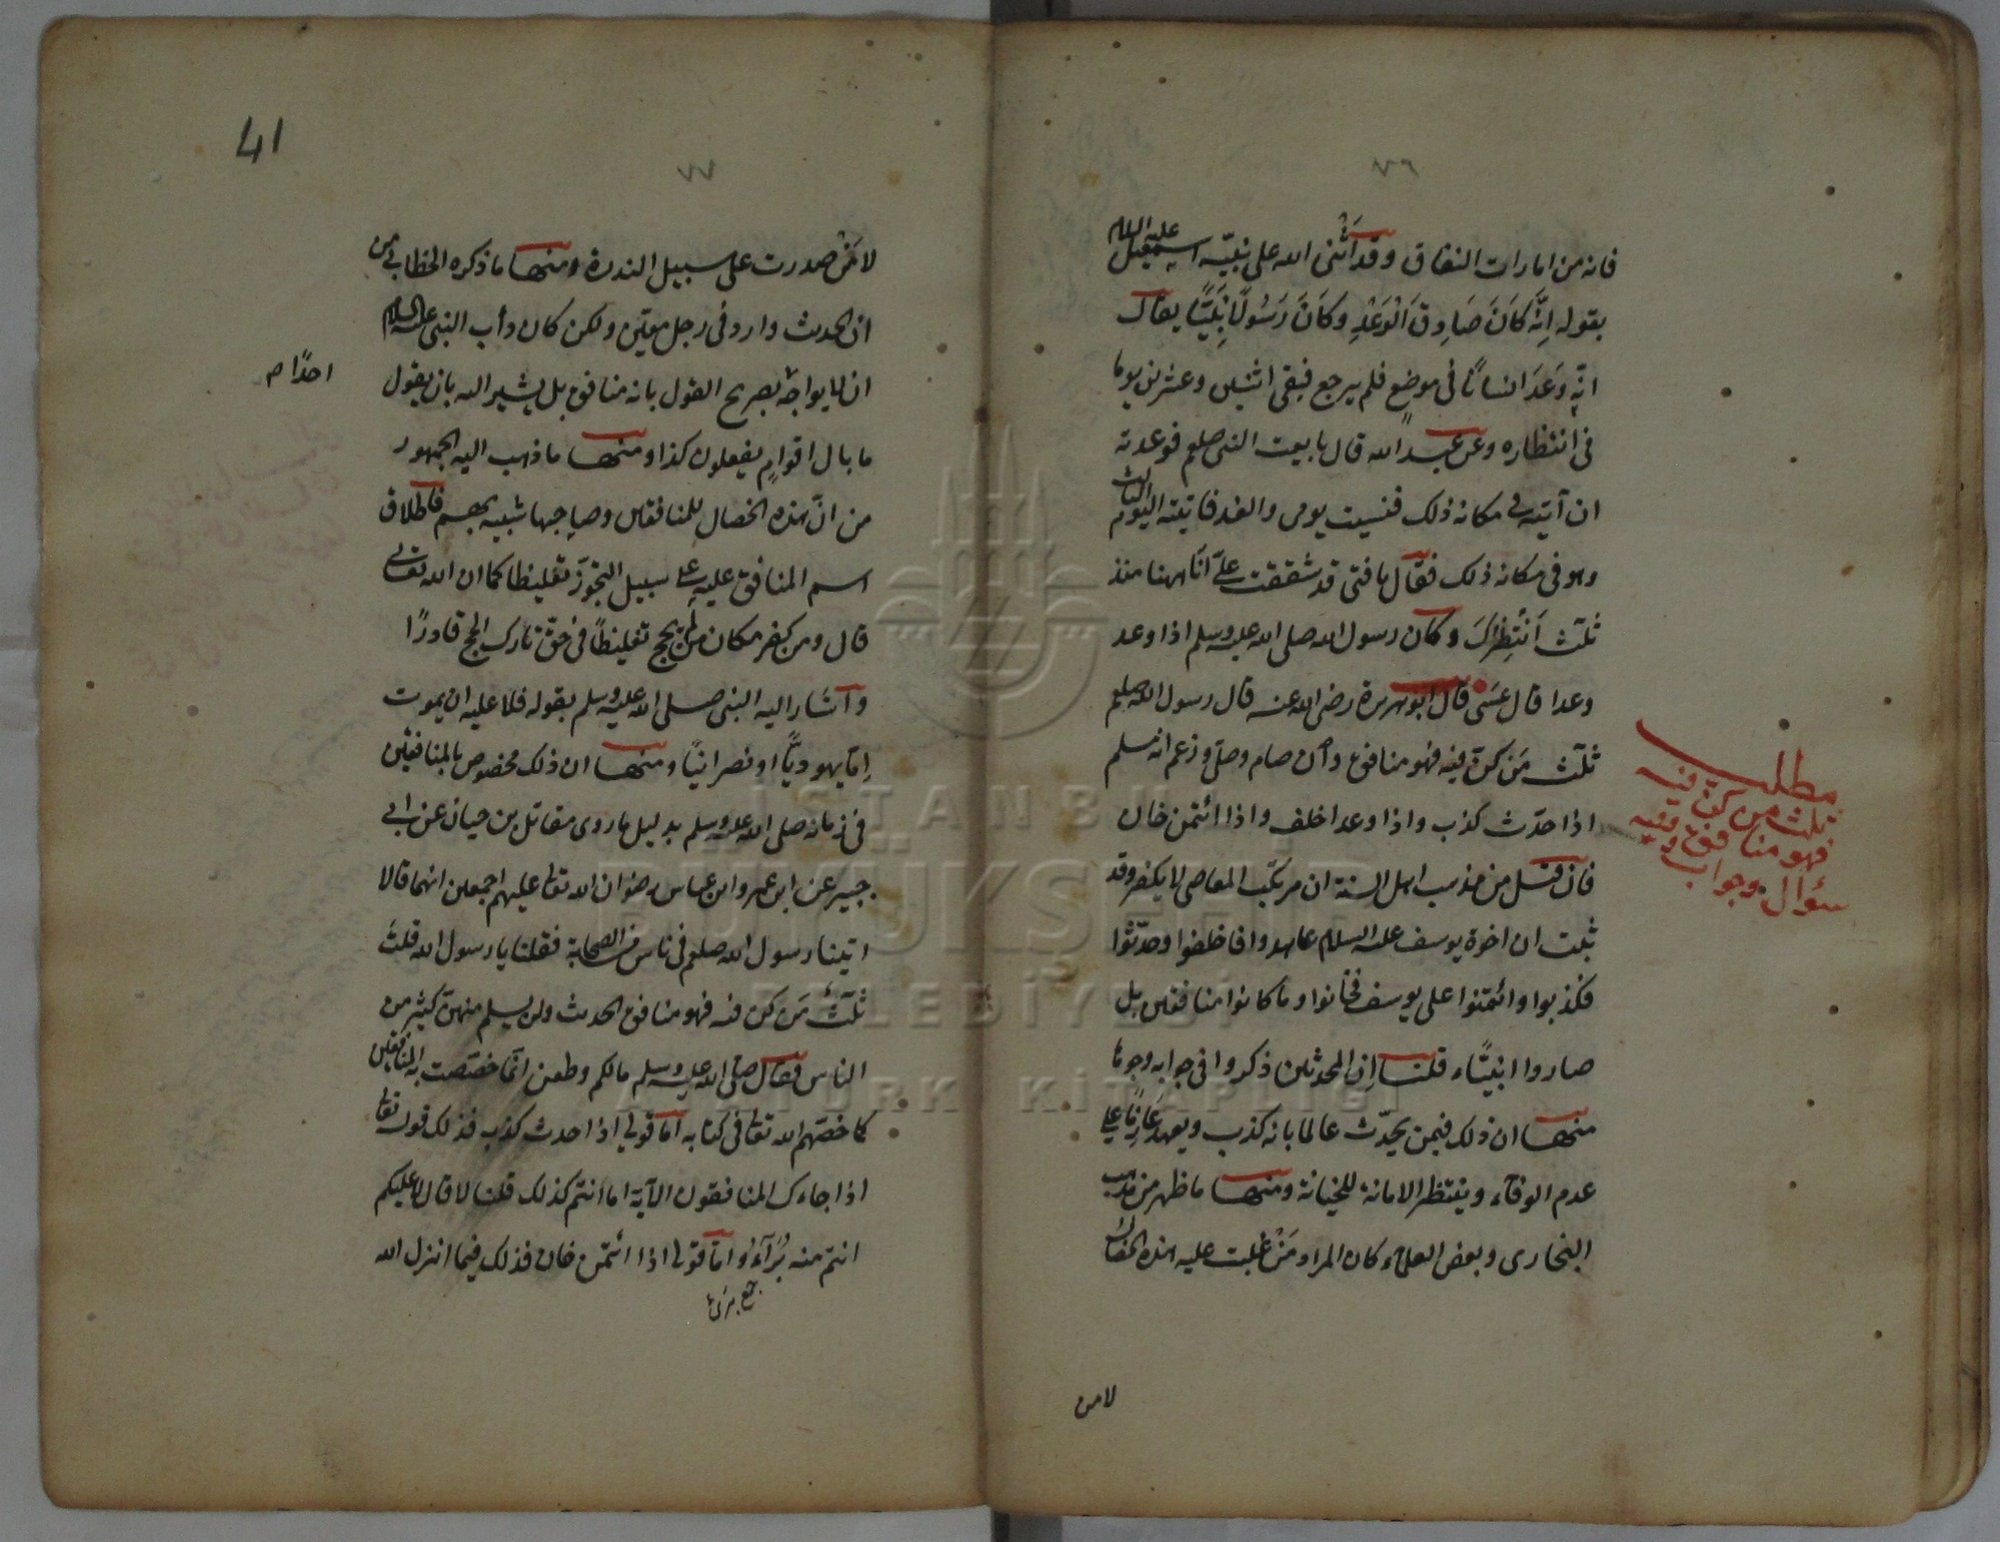 ٧٦
فانه من امارات النفاق وقد اَثْنى الله على نبيّه اسمعيل عليه السلام
بقوله اِنَّهُ كَانَ صَادِقَ الْوَعْدِ وَكَانَ رَسُولًا نَبِيًّا يقال
انّه وَعَدَ انسانًا فى موضع فلم يرجع فبقى اثنين وعشرين يوما
فى انتظاره وعن عبد الله قال بايعت النبى صلعم فوعدته
ان آتيه فى مكانه ذلك فنسيت يومى والغد فاتيته اليوم الثالث
وهو فى مكانه ذلك فقال يا فتى قد شققت علىّ اَنا ههنا منذ
ثلث اَنْتَظِرُكَ وكان رسول الله صلى الله عليه وسلم اذا وعد
وعدا قال عَسَى قال ابو هريرة رضى الله عنه قال رسول الله صلعم
ثلث مَن كنّ فيه فهو منافق وان صام وصلى وزعم انه مسلم
اذا حدّث كذب واذا وعد اخلف واذا ائتمن خان
فان قيل من مذهب اهل السنة ان مرتكب المعاصى لا يكفر وقد
ثبت ان اخوة يوسف عليه السلام عاهدوا فاخلفوا وحدّثوا
فكذبوا وائتمنوا على يوسف فخانوا وما كانوا منافقين بل
صاروا انبيآء قلنا اِنّ المحدثين ذكروا فى جوابه وجوها
منها ان ذلك فيمن يحدّث عالما بانه كذب ويعهد عَازِمًا على
عدم الوفآء وينتظر الامانة للخيانة ومنها ما ظهر من مذهب
البخارى وبعض العلمآء كان المراد مَنْ غلبت عليه هذه الخصال
لا من
مطلب
ثلث من كن فيه
فهو منافق وفيه
سؤال وجواب
41
٧٧
لا مَنْ صدرت على سبيل الندرة ومنها ما ذكره الخطابى من
ان الحديث وارد فى رجل معيّن ولكن كان دأب النبى عليه السلام
ان لا يواجه بصريح القول بانه منافق بل يشير اليه بان يقول
احدًا م
ما بال اقوامٍ يفعلون كذا ومنها ما ذهب اليه الجمهور
من انّ هذه الخصال للمنافقين وصاحبها شبيه بهم فاطلاق
اسم المنافق عليه على سبيل التجوّز تغليظا كما ان الله تعالى
قال ومن كفر مكان من لم يحج تغليظًا فى حق تارك الحج قادرًا
وآشار اليه النبى صلى الله عليه وسلم بقوله فلا عليه ان يموت
اِمّا يهوديًّا او نصرانيًّا ومنها ان ذلك مخصوص بالمنافقين
فى زمانه صلى الله عليه وسلم بدليل ما روى مقاتل بن حيان عن ابى
جبير عن ابن عمر وابن عباس رضوان الله تعالى عليهم اجمعين انهما قالا
اتينا رسول الله صلعم فى ناس من الصحابة فقلنا يا رسول الله قلتَ
ثلآثٌ مَن كنّ فيه فهو منافق الحديث ولن يسلم منهنّ كثير من
الناس فقال صلى الله عليه وسلم مالكم وطعن انّما خصّصت به المنافقين
كما خصّهم الله تعالى فى كتابه اما قولى اذا حدث كذب فذلك قوله تعالى
اذا جاءك المنافقون الآية اما انتم كذلك قلنا لا قال لا عليكم
انتم منه بُرَآءُ واما قولى اذا ائتمن خان فذلك فيما انزل الله
جمع برئ